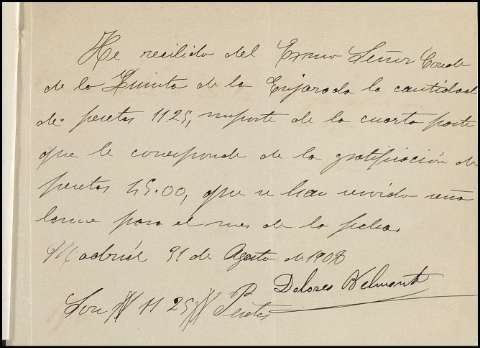 He recibido del Exmo Señor Conde
de la Quinta de la Enjarada la cantidad
de pesetas 1125, importe de la cuarta parte
que le corresponde de la gratificación de
pesetas 4500, que se han
para el mes de la fecha.
Madrid 31 de Agosto de 1908
Dolores Belmont
Son ## 1125 ## Pesetas